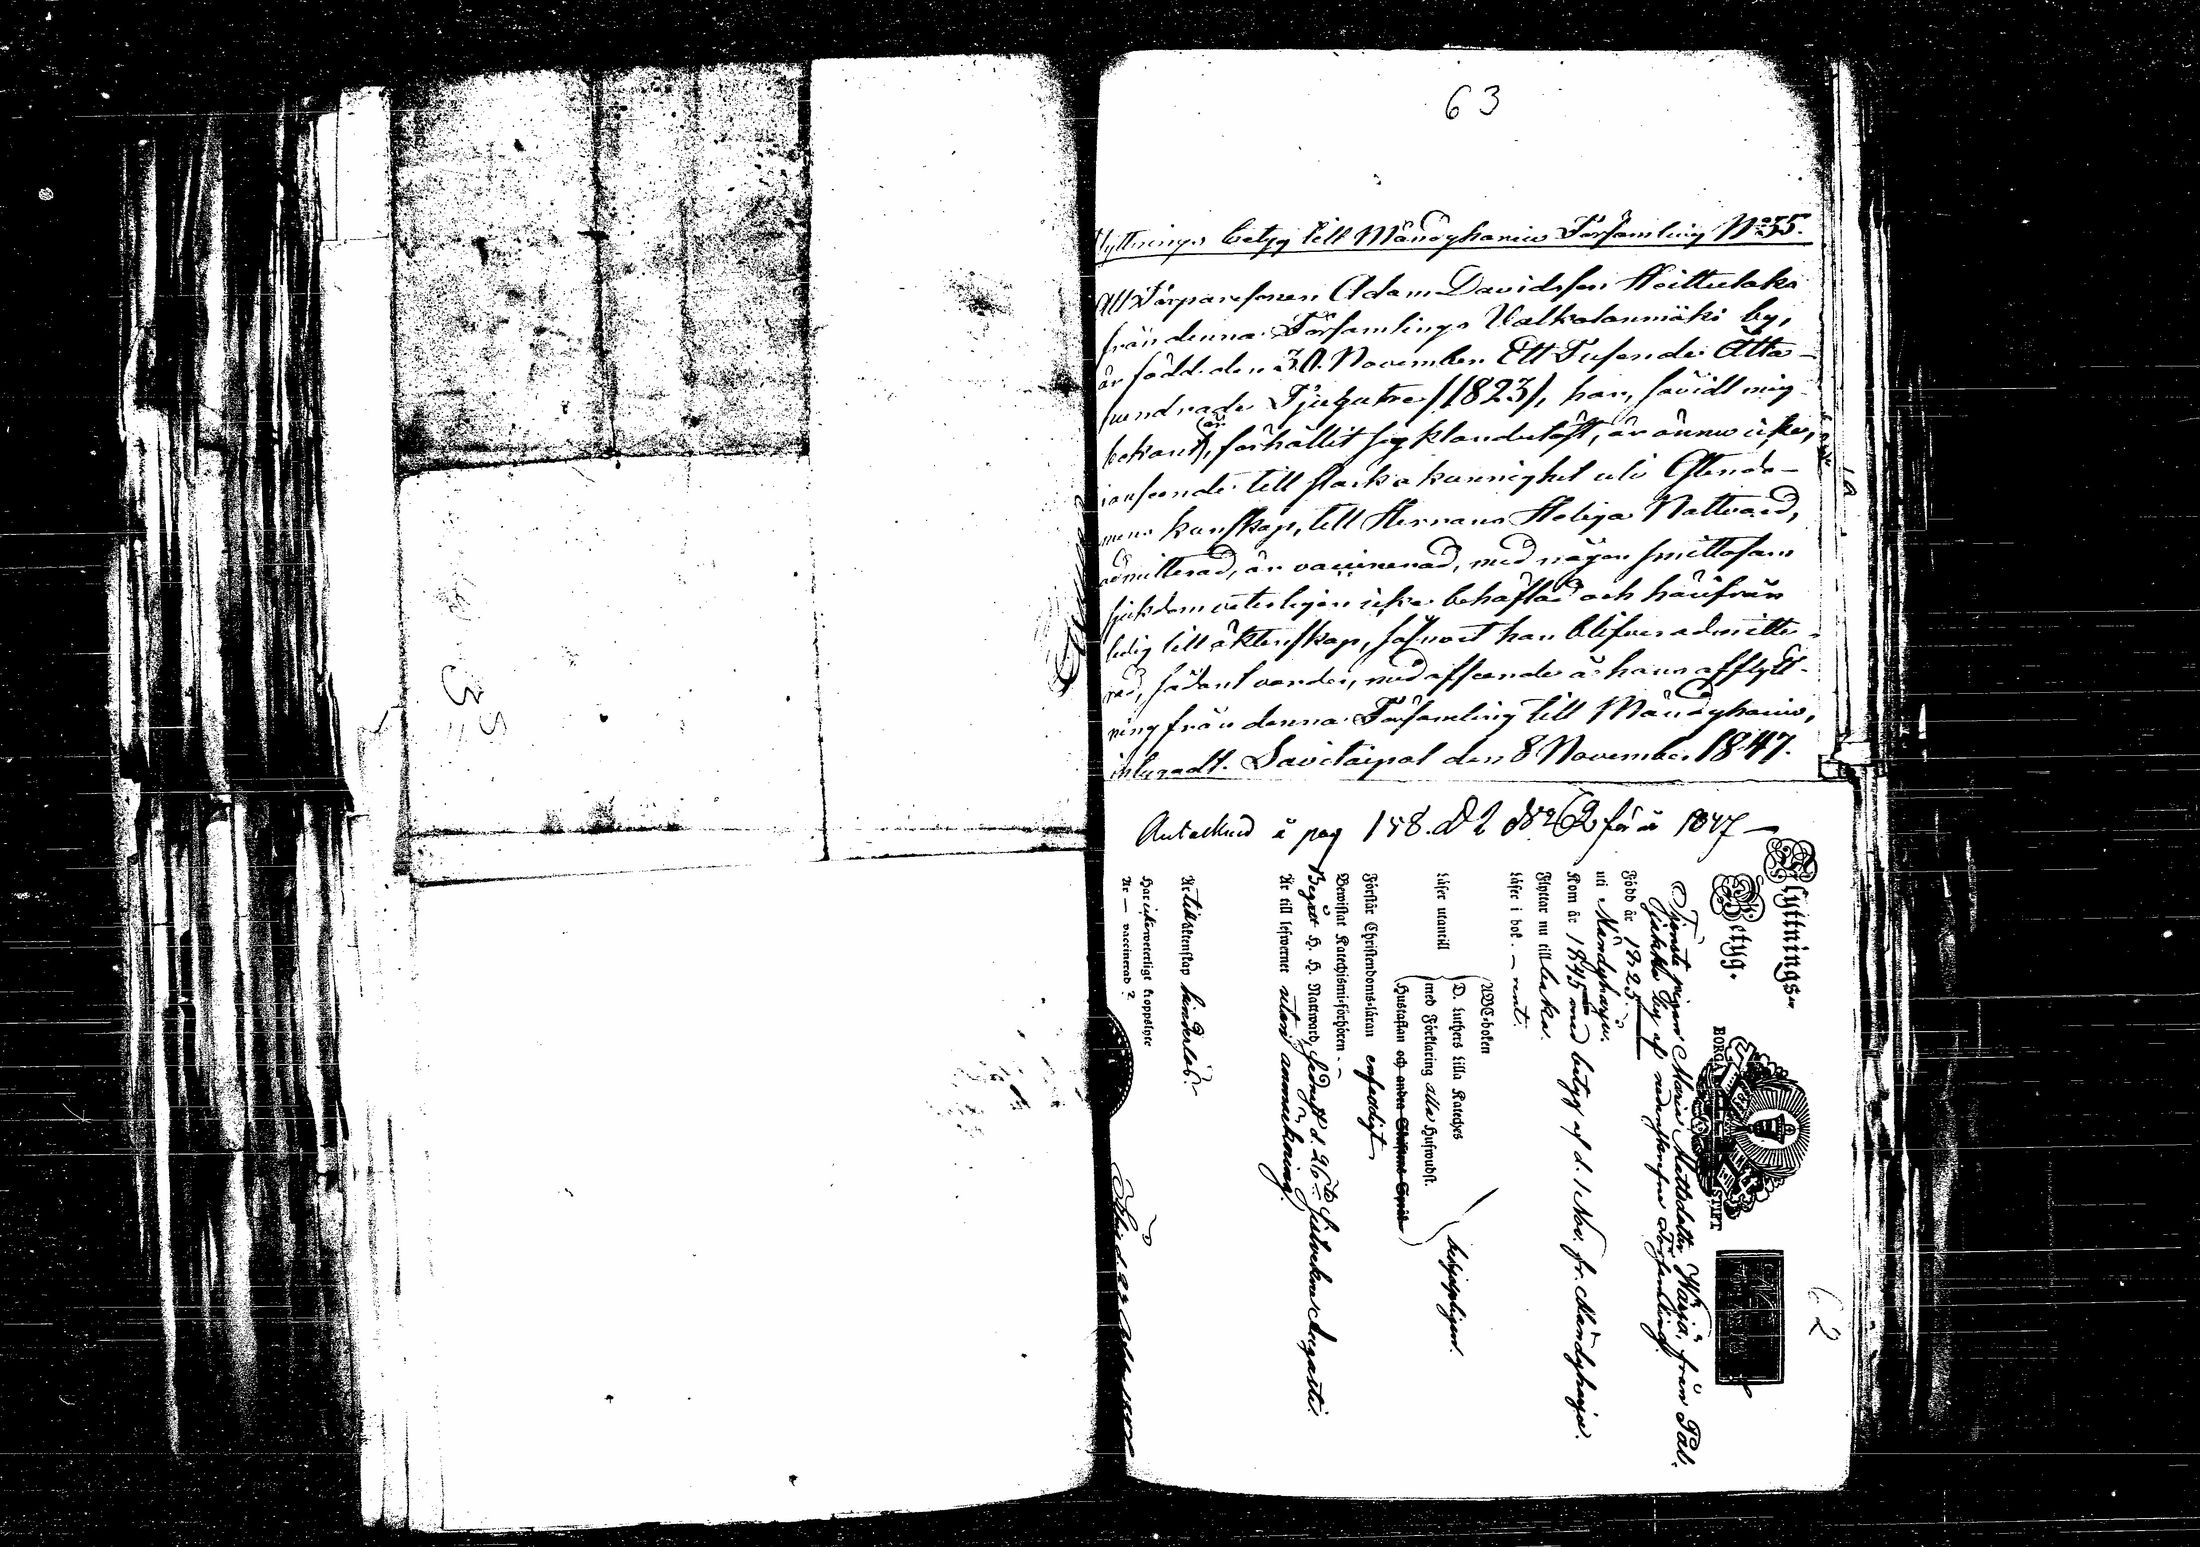 63
Flyttnings betyg till Mändyharju Församling No 35.
Att Torparesonen Adam Davidsson Heittulaks
från denna Församlings Valkolanmäki by,
är född den 30 November Ett Tusende Åtta
hundrade Tjugutre /1823/, har, såvidt mig
bekant är, förhållit sig klanderlöst, är ännu icke,
i anseende till svaka kunnighet uti Christendo-
mens kunskap, till Herrans Heliga Nattvard,
admitterad, är vaccinerad, med någon smittosam
sjukdom veterligen icke behäftad och härifrån
ledig till äktenskap, så snart han blifver admitte-
rad, sådant varder, med afseende å hans afflytt-
ning från denna Församling till Mändyharju,
intygadt. Savitaipal den 8 November 1847.
Antecknad å pag 158. för år 1847
62
Flyttnings-
Betyg.
BORGÅ STIFT
Tjenste pigan Maria Mattsdotter från
by af nedanskrefne Församling
Född år 1825.
uti Mändyharju.
Kom år 1845 med betyg af d. 1 Nov. fr. Mändyharju.
Flyttar nu tillbaka.
Läser i bok. — rent.
Läser utantill
ABC-boken
D. Luthers Lilla Kateches
med Förklaring alla Hufvudst.
Hustaflan och andra Christens Symb.
behjelpligen.
Förstår Christendoms-läran enfaldigt
Bewistat Katechismi-förhören
Begått H. H. Nattward, sednast d. 26 Augusti.
Är till lefwernet utan anmärkning.
Är till äktenskap hinderlös.
Har icke weterligt kroppslyte
Är — vaccinerad